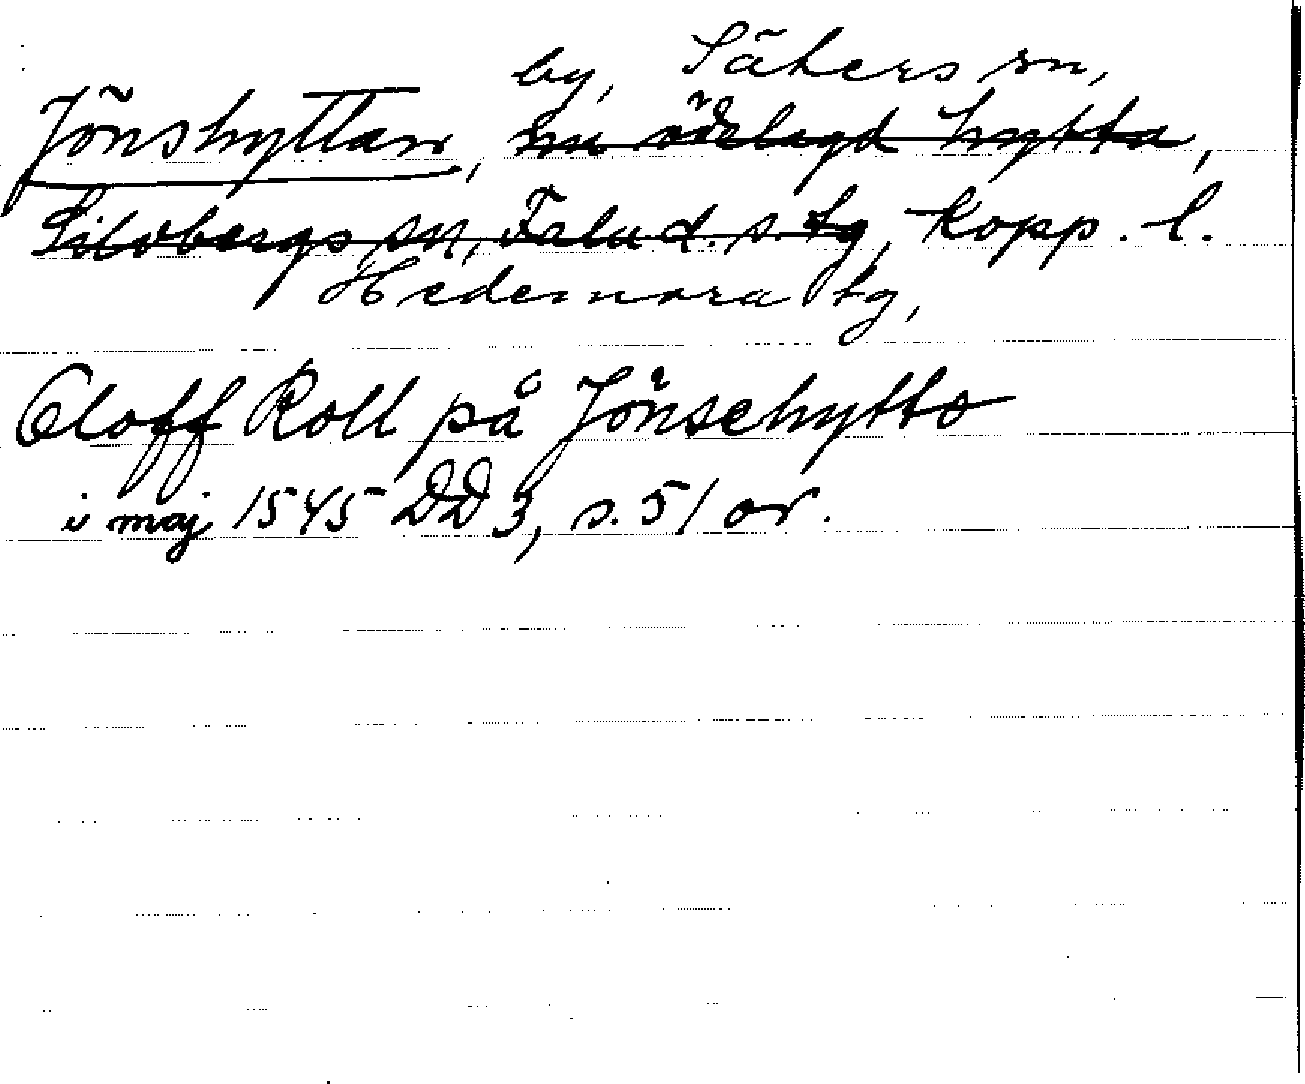 by, Säters sn,
Jönshyttan, nu ödelagd hytta,
Silvbergs sn, Falu d. s. tg, Kopp. l.
Hedemora tg,
Oloff Roll på Jönsehytto
i maj 1545 DD 3, s. 51 or.